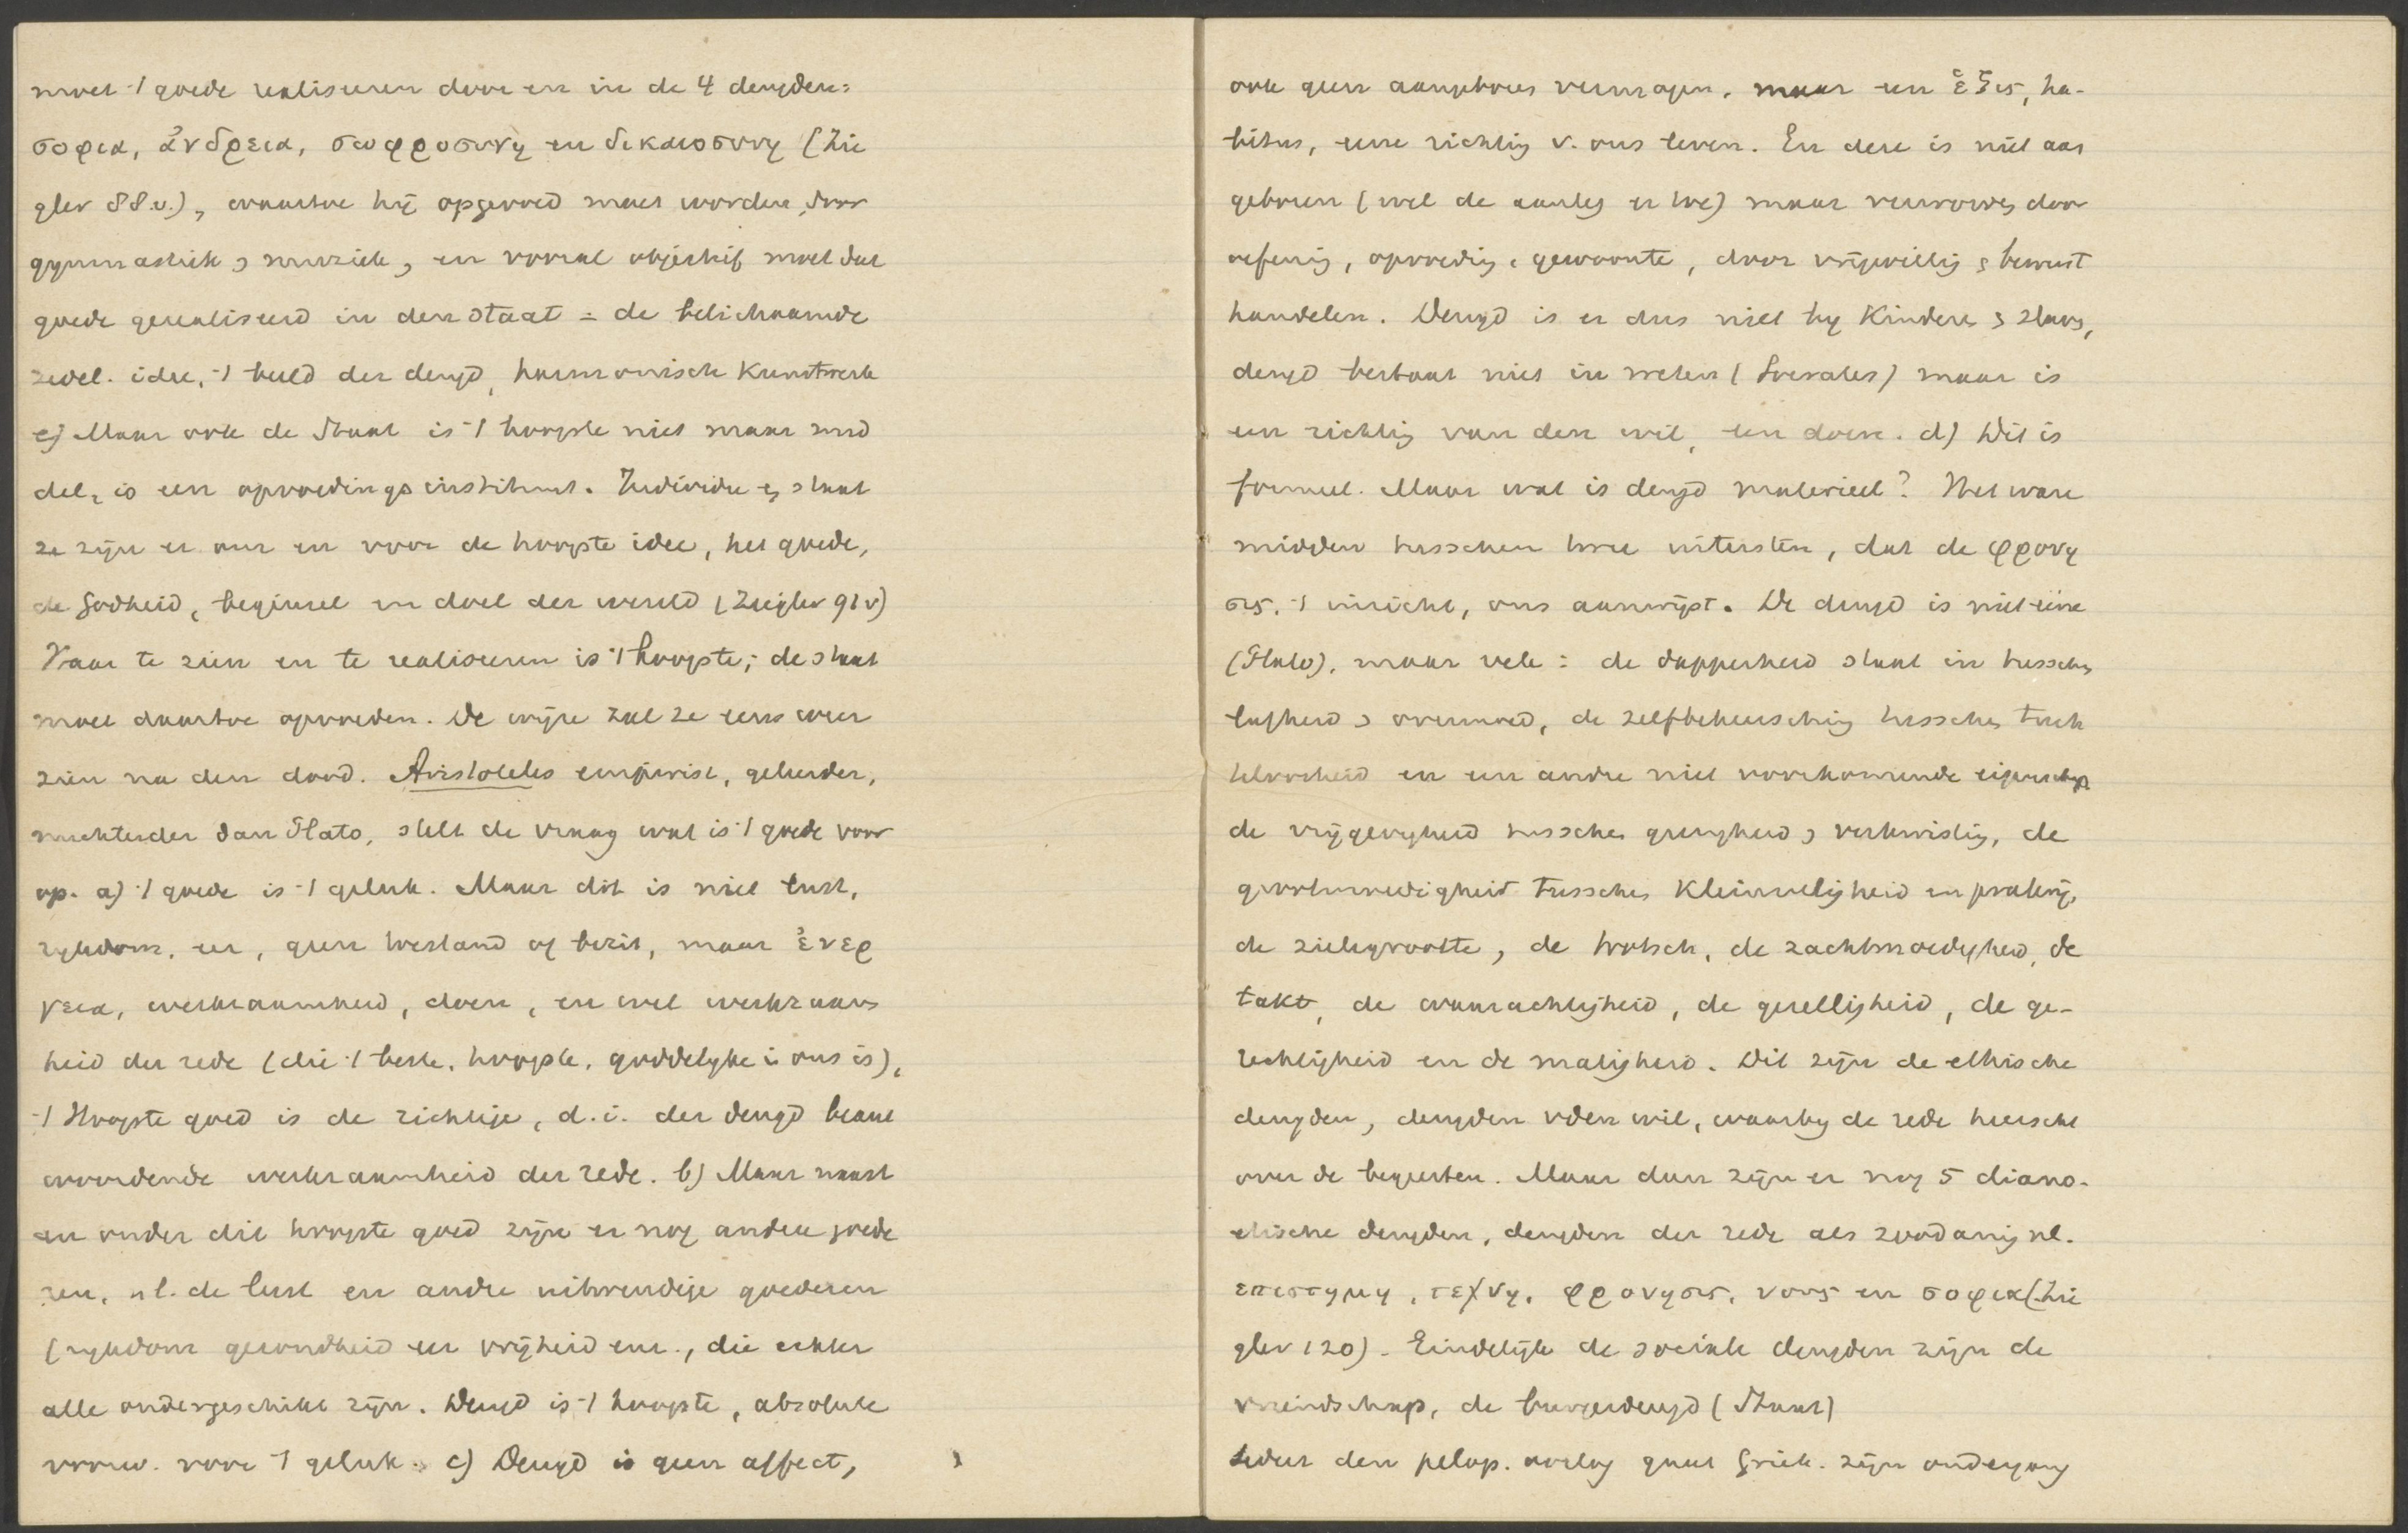 moet 't goede realiseeren door en in de 4 deugden:
σοφια, ἀνδρεια, σωφροσυνη en δικαιοσυνη (Zie
gler 88.v.), waartoe hij opgevoed moet worden, door
gymnastiek & muziek, en vooral objectief moet dat
goede gerealiseerd in den staat = de belichaamde
zedel. idee, 't beeld der deugd, harmonisch Kunstwerk
e) Maar ook de Staat is 't hoogste niet maar mid
del, is een opvoedingsinstituut. Individu en staat
ze zijn er om en voor de hoogste idee, het goede,
de Godheid, beginsel en doel der wereld (Ziegler 91v)
Haar te zien en te realiseeren is 't hoogste; de staat
moet daartoe opvoeden. De wijze zal ze eens weer
zien na den dood. Aristoteles empirist, geleerder,
nuchterder dan Plato, stelt de vraag wat is 't goede voor
op. a) 't goede is 't geluk. Maar dit is niet lust,
rijkdom, eer, geen toestand of bezit, maar ἐνερ
γεια, werkzaamheid, doen, en wel werkzaam
heid der rede (die 't beste, hoogste, goddelijke in ons is),
't Hoogste goed is de richtige, d.i. der deugd beant
woordende werkzaamheid der rede. b) Maar naast
en onder dit hoogste goed zijn er nog andere goede
ren, nl. de lust en andre uitwendige goederen
(rijkdom gezondheid eer vrijheid enz., die echter
alle ondergeschikt zijn. Deugd is 't hoogste, absolute
voorw. voor 't geluk. c) Deugd is geen affect,
ook geen aangeboren vermogen, maar een ἑξις, ha-
bitus, eene richting v. ons leven. En deze is niet aan
geboren (wel de aanleg er toe) maar verworven door
oefening, opvoeding, gewoonte, door vrijwillig & bewust
handelen. Deugd is er dus niet bij Kinderen & slaven,
deugd bestaat niet in weten (Socrates) maar is
een richting van den wil, een doen. d) Dit is
formeel. Maar wat is deugd materieel? Het ware
midden tusschen twee uitersten, dat de φρονη
σις, 't inzicht, ons aanwijst. De deugd is niet eene
(Plato), maar vele: de dapperheid staat in tusschen
lafheid & overmoed, de zelfbeheersching tusschen tuch
teloosheid en een andre niet voorkomende eigenschap
de vrijgevigheid tusschen gierigheid & verkwisting, de
grootmoedigheid tusschen Kleinzeligheid en pralerij,
de zielsgrootte, de trotsch, de zachtmoedigheid, de
takt, de waarachtigheid, de gezelligheid, de ge-
rechtigheid en de matigheid. Dit zijn de ethische
deugden, deugden v den wil, waarbij de rede heerscht
over de begeerten. Maar dan zijn er nog 5 diano-
etische deugden, deugden der rede als zoodanig nl.
επιστημη, τεχνη, φρονησις, νους en σοφια (Zie
gler 120). Eindelijk de sociale deugden zijn de
vriendschap, de burgerdeugd (Staat)
Sedert den pelop. oorlog gaat Griek. zijn ondergang